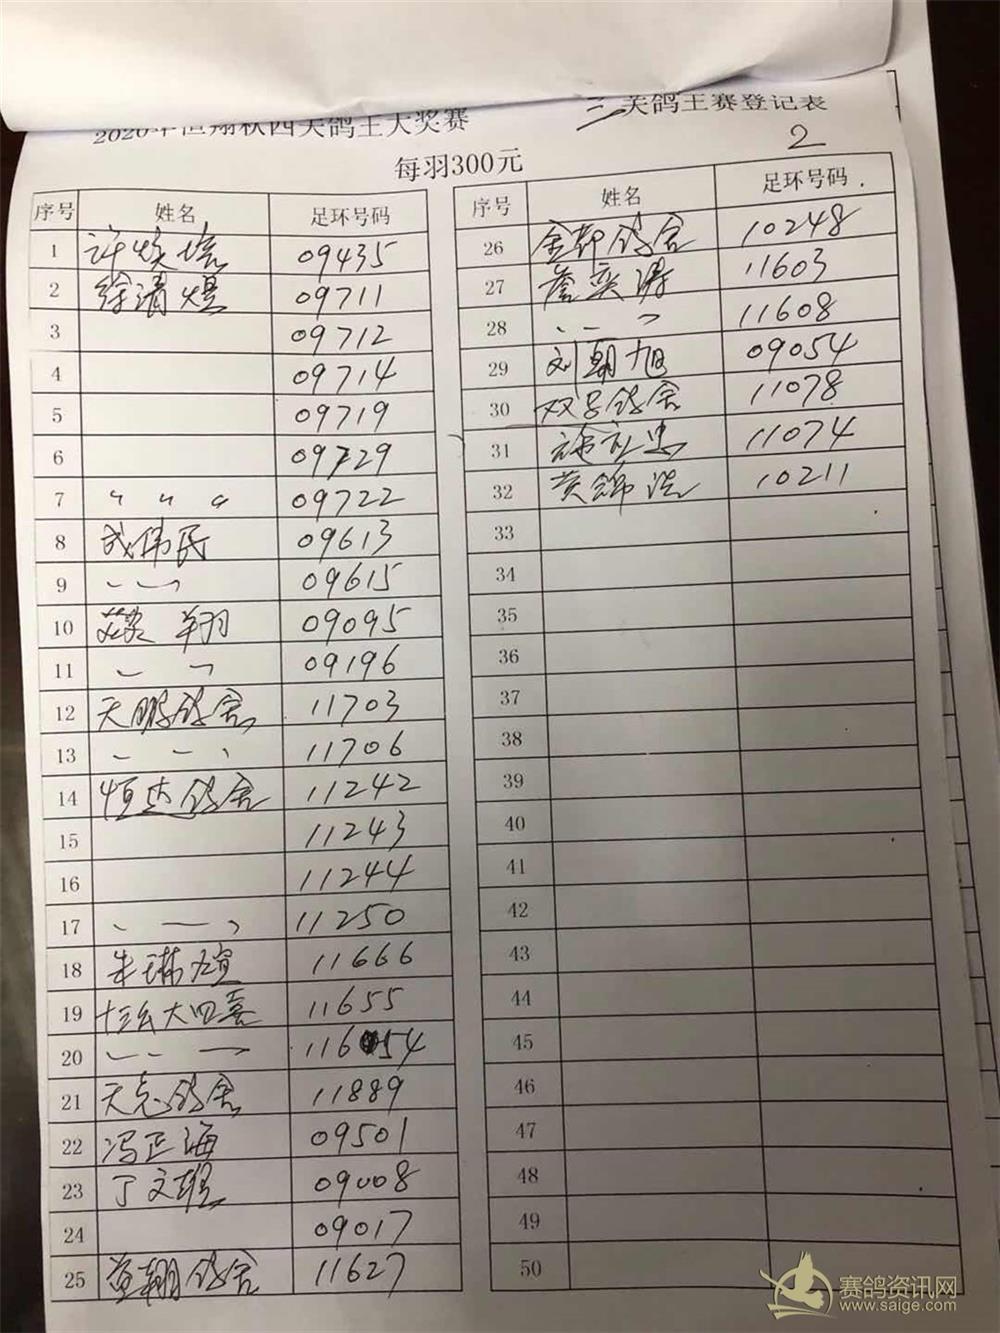 2020年恒翔秋四关鸽王大奖赛 三关鸽王赛登记表
2
每羽300元
序号 姓名 足环号码
1 许焕 09435
2 徐清煜 09711
3 09712
4 09714
5 09719
6 09729
7 〃 〃 〃 09722
8 成伟民 09613
9 09615
10 翔 09095
11 09196
12 天鹏鸽舍 11703
13 11706
14 恒达鸽舍 11242
15 11243
16 11244
17 11250
18 朱琳谊 11666
19 大四喜 11655
20 11654
21 天志鸽舍 11889
22 冯正海 09501
23 丁文雄 09008
24 09017
25 翱鸽舍 11627
序号 姓名 足环号码
26 金郭鸽舍 10248
27 詹奕涛 11603
28 11608
29 刘朝旭 09054
30 双号鸽舍 11078
31 11074
32 黄锦洪 10211
33
34
35
36
37
38
39
40
41
42
43
44
45
46
47
48
49
50
赛鸽资讯网
www.saige.com